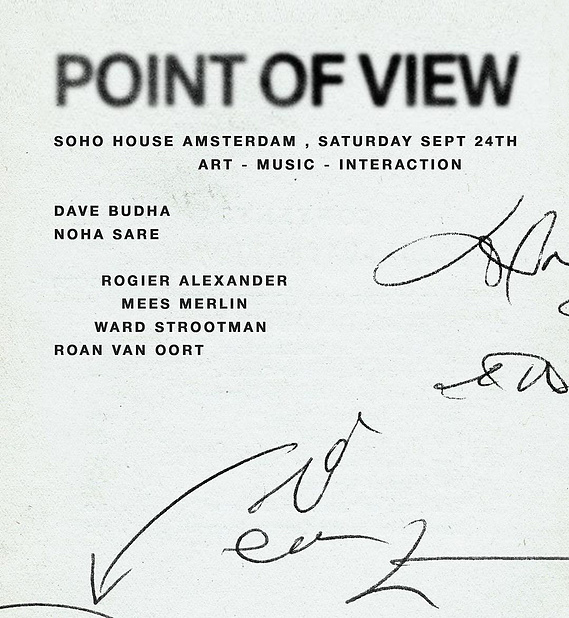 POINT OF VIEW
SOHO HOUSE AMSTERDAM , SATURDAY SEPT 24TH
ART - MUSIC - INTERACTION
DAVE BUDHA
NOHA SARE
ROGIER ALEXANDER
MEES MERLIN
WARD STROOTMAN
ROAN VAN OORT